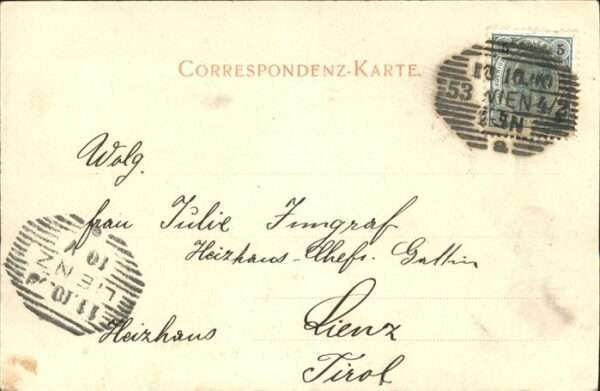 CORRESPONDENZ-KARTE.
5 5
10.10.00
53 WIEN 4/2
2-3N
a
Wolg.
frau Julie Jungraf
Heizhaus-Chefs. Gattin
11.10.
LIENZ
10 V
Heizhaus Lienz
Tirol